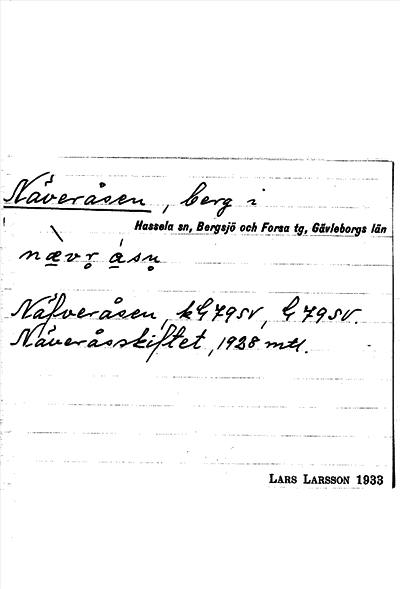 Näveråsen, berg i
Hassela sn, Bergsjö och Forsa tg, Gävleborgs län
nævr̥ åsn̥
Näfveråsen, kG79SV, G79SV.
Näveråsskiftet, 1928 mtl.
LARS LARSSON 1933